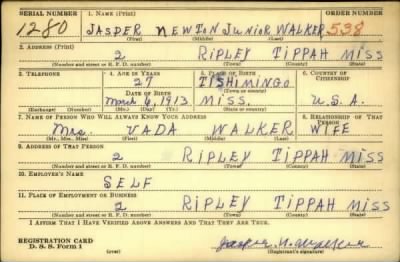 SERIAL NUMBER 1. NAME (Print) ORDER NUMBER
1280 JASPER NEWTON JUNIOR WALKER 538
(First) (Middle) (Last)
2. ADDRESS (Print)
2 RIPLEY TIPPAH MISS
(Number and street or R. F. D. number) (Town) (County) (State)
3. TELEPHONE 4. AGE IN YEARS 5. PLACE OF BIRTH 6. COUNTRY OF CITIZENSHIP
27 TISHIMINGO
DATE OF BIRTH (Town or county)
March 6, 1913. MISS. U.S.A.
(Exchange) (Number) (Mo.) (Day) (Yr.) (State or country)
7. NAME OF PERSON WHO WILL ALWAYS KNOW YOUR ADDRESS 8. RELATIONSHIP OF THAT PERSON
Mrs. VADA WALKER WIFE
(Mr., Mrs., Miss) (First) (Middle) (Last)
9. ADDRESS OF THAT PERSON
2 RIPLEY TIPPAH MISS
(Number and street or R. F. D. number) (Town) (County) (State)
10. EMPLOYER'S NAME
SELF
11. PLACE OF EMPLOYMENT OR BUSINESS
2 RIPLEY TIPPAH MISS
(Number and street or R. F. D. number) (Town) (County) (State)
I AFFIRM THAT I HAVE VERIFIED ABOVE ANSWERS AND THAT THEY ARE TRUE.
REGISTRATION CARD
D. S. S. Form 1 (over) Jasper N. Walker
(Registrant's signature)